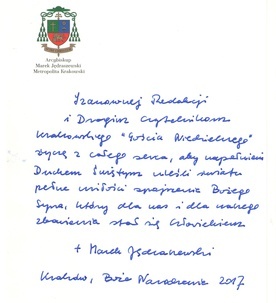 Arcybiskup
Marek Jędraszewski
Metropolita Krakowski
Szanownej Redakcji
i Drogim Czytelnikom
krakowskiego "Gościa Niedzielnego"
życzę z całego serca, aby napełnieni
Duchem Świętym nieśli światu
pełne miłości spojrzenie Bożego
Syna, który dla nas i dla naszego
zbawienia stał się Człowiekiem
+ Marek Jędraszewski
Kraków, Boże Narodzenie 2017